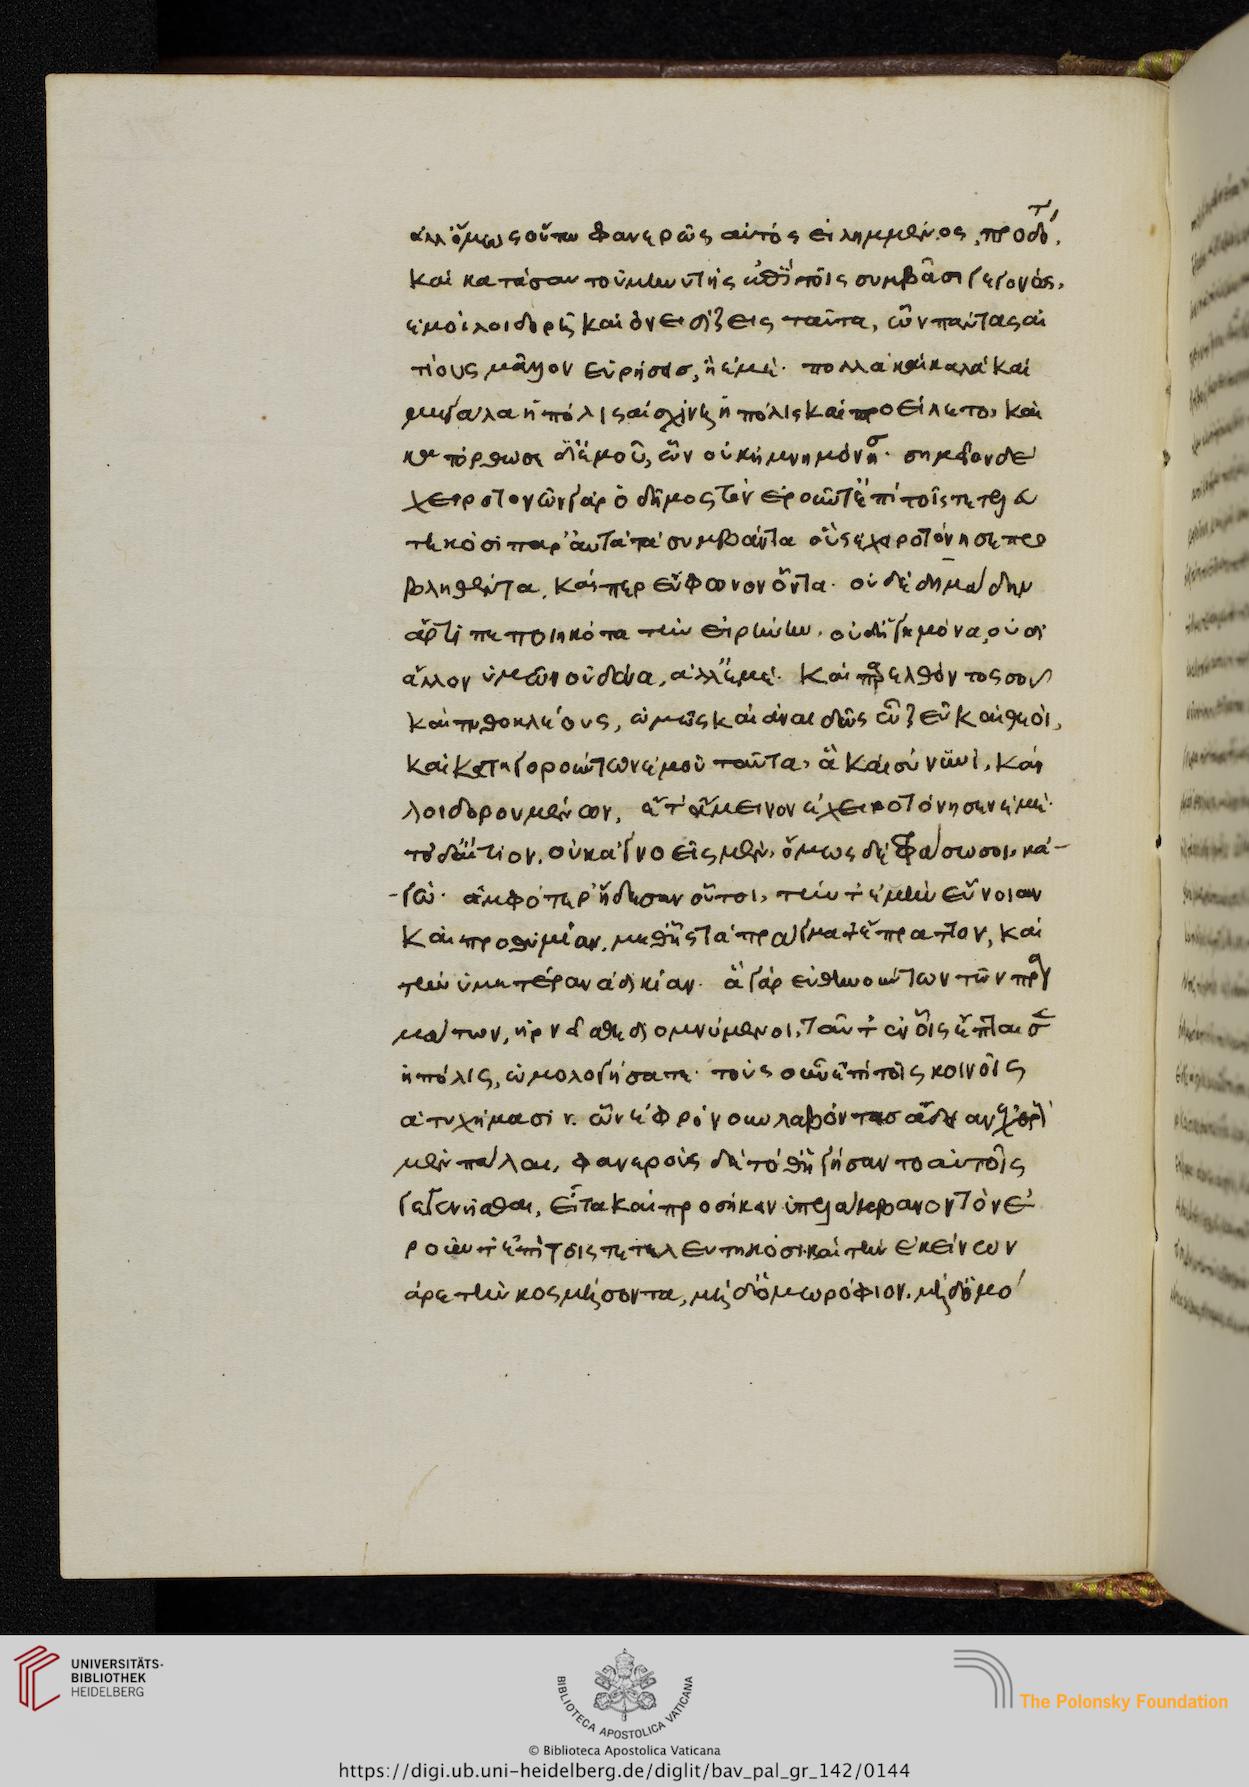 ἀλλ' ὅμως οὕπω φανερῶς αὐτός εἰλημμένος, προδότ,
καὶ κατάσαν τοὐμὲν τῆς ἀθ' τοῖς συμβᾶσι γεγονώς,
ἐμοὶ λοιδορῆ καὶ ὀνειδίζεις ταῦτα, ὧν πάντας αἰ
τίους μᾶλλον εὑρήσεις, ἢ ἐμέ. πολλὰ καὶ καλὰ καὶ
μεγάλα ἡ πόλις αἰσχίνη ἡ πόλις καὶ προείλετο, καὶ
κατώρθωσε δι' ἐμοῦ, ὧν οὐκ ἠμνημόνησ. σημεῖον δέ
χειροτονῶν γὰρ ὁ δῆμος τὸν ἐροῦντ' ἐπὶ τοῖς τετελευ
τηκόσι παρ' αὐτὰ τὰ συμβάντα οὐ σὲ ἐχειροτόνησε προ
βληθέντα, καίπερ εὔφωνον ὄντα. οὐδὲ δημάδην
ἄρτι πεποιηκότα τὴν εἰρήνην. οὐδ' ἡγεμόνα, οὐδ'
ἄλλον ὑμῶν οὐδένα, ἀλλ' ἐμέ. καὶ παρελθόντος σου
καὶ πυθοκλέους, ὠμῶς καὶ ἀναιδῶς ὦ ζεῦ καὶ θεοί,
καὶ κατηγορούντων ἐμοῦ ταῦτα, ἃ καὶ σὺ νυνί, καὶ
λοιδορουμένων, ἔτ' ἄμεινον ἐχειροτόνησεν ἐμέ.
τὸ δ' αἴτιον, οὐκ ἀγνοεῖς μέν, ὅμως δὲ φράσω σοι, κἀ-
-γώ. ἀμφότερ' ᾔδησαν οὗτοι, τήν τ' ἐμὴν εὔνοιαν
καὶ προθυμίαν, μεθ' ἧς τὰ πράγματ' ἔπραττον, καὶ
τὴν ὑμετέραν ἀδικίαν. ἃ γὰρ εὐθηνούντων τῶν πραγ
μάτων, ἠρνεῖσθε διομνύμενοι, ταῦτ' ἐν οἷς ἔπταισεν
ἡ πόλις, ὡμολογήσατε. τοὺς οὖν ἐπὶ τοῖς κοινοῖς
ἀτυχήμασιν. ὧν ἐφρόνουν λαβόντας ἄδειαν ἐχθροὺς
μὲν πάλαι, φανεροὺς δὲ τόθ' ἡγήσαντο αὑτοῖς
γεγενῆσθαι, εἶτα καὶ προσήκειν ὑπελάμβανον τὸν ἐ
ροῦντ' ἐπὶ τοῖς τετελευτηκόσι καὶ τὴν ἐκείνων
ἀρετὴν κοσμήσοντα, μήθ' ὁμωρόφιον. μήθ' ὁμό
UNIVERSITÄTS-
BIBLIOTHEK
HEIDELBERG
BIBLIOTECA APOSTOLICA VATICANA
The Polonsky Foundation
© Biblioteca Apostolica Vaticana
https://digi.ub.uni-heidelberg.de/diglit/bav_pal_gr_142/0144